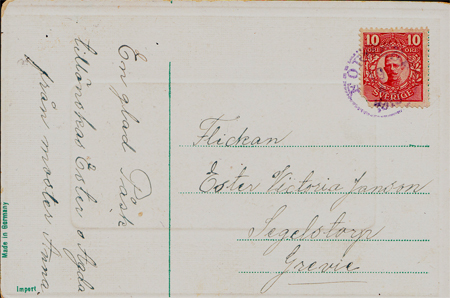 En glad Påsk
tillönskas Ester o Agda
från moster Anna.
10 10
ÖRE ÖRE
SVERIGE
Flickan
Ester Victoria Janson
Segelstorp
Grevie
Made in Germany
Import